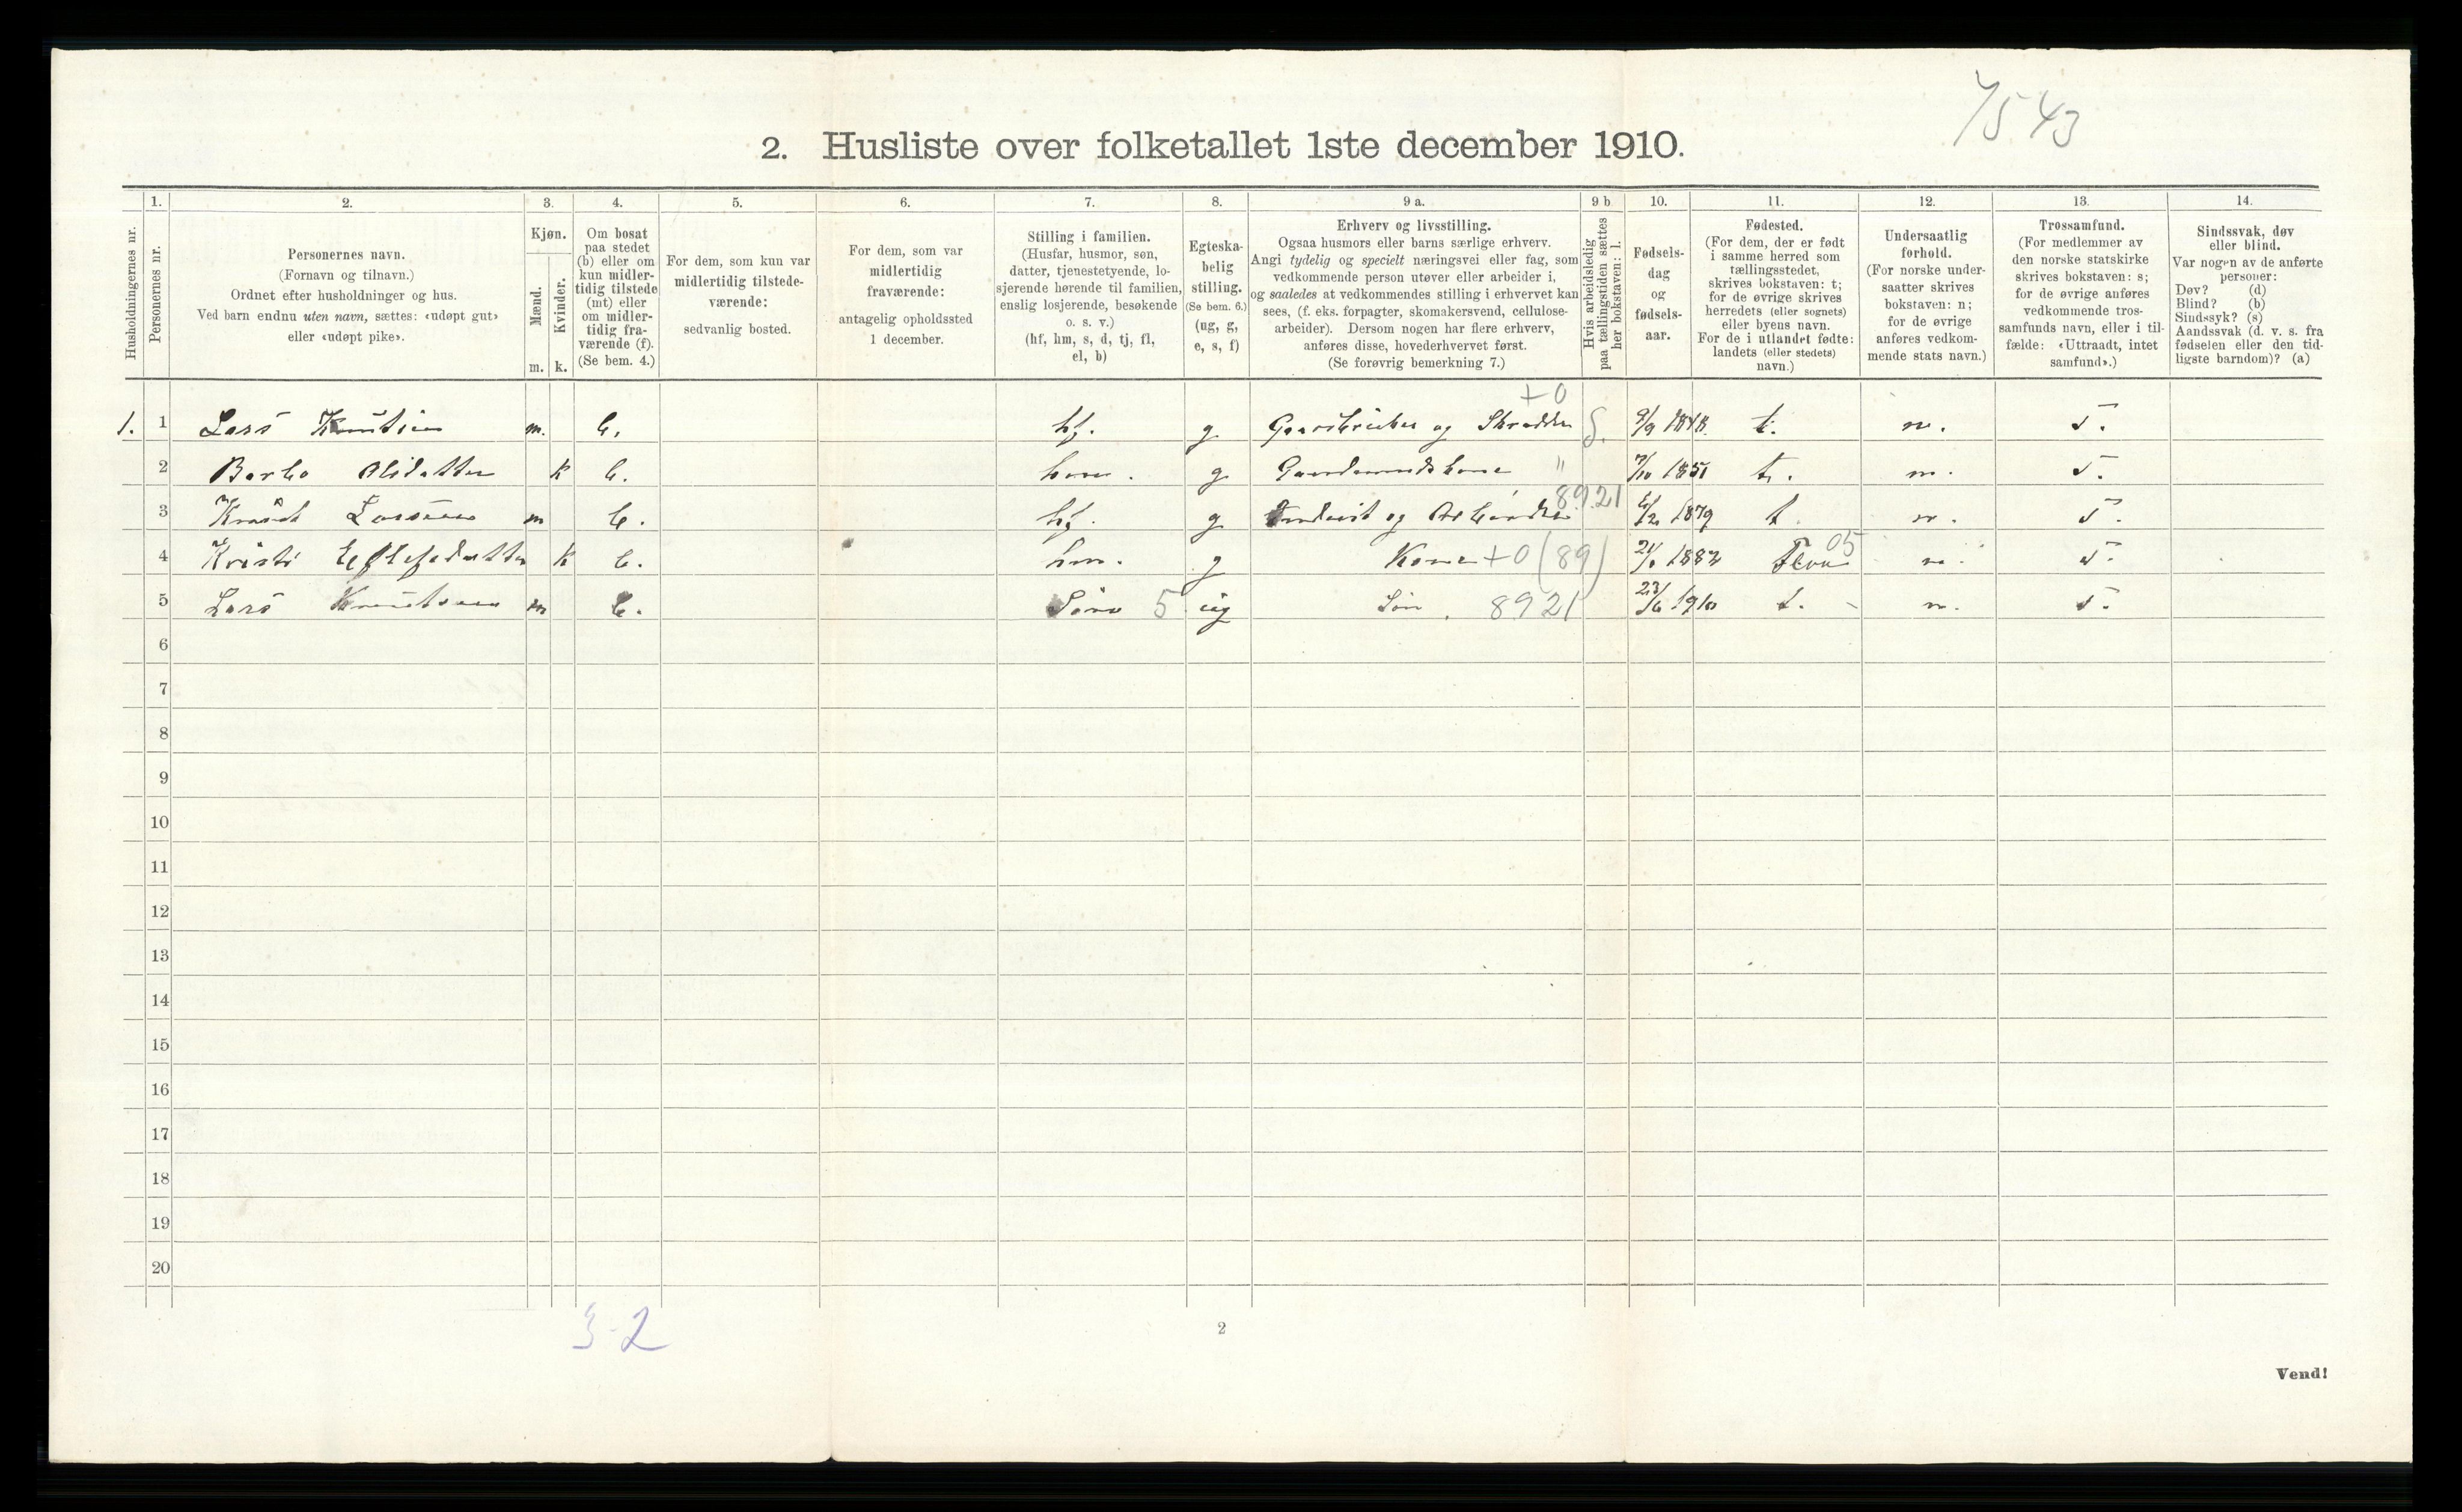 7543
2. Husliste over folketallet 1ste december 1910.
Husholdningernes nr.
1. Personernes nr.
2. Personernes navn.
(Fornavn og tilnavn.)
Ordnet efter husholdninger og hus.
Ved barn endnu uten navn, sættes: «udøpt gut»
eller «udøpt pike».
3. Kjøn.
Mænd. Kvinder.
m. k.
4. Om bosat
paa stedet
(b) eller om
kun midler-
tidig tilstede
(mt) eller
om midler-
tidig fra-
værende (f).
(Se bem. 4.)
5. For dem, som kun var
midlertidig tilstede-
værende:
sedvanlig bosted.
6. For dem, som var
midlertidig
fraværende:
antagelig opholdssted
1 december.
7. Stilling i familien.
(Husfar, husmor, søn,
datter, tjenestetyende, lo-
sjerende hørende til familien,
enslig losjerende, besøkende
o. s. v.)
(hf, hm, s, d, tj, fl,
el, b)
8. Egteska-
belig
stilling.
(Se bem. 6.)
(ug, g,
e, s, f)
9 a. Erhverv og livsstilling.
Ogsaa husmors eller barns særlige erhverv.
Angi tydelig og specielt næringsvei eller fag, som
vedkommende person utøver eller arbeider i,
og saaledes at vedkommendes stilling i erhvervet kan
sees, (f. eks. forpagter, skomakersvend, cellulose-
arbeider). Dersom nogen har flere erhverv,
anføres disse, hovederhvervet først.
(Se forøvrig bemerkning 7.)
9 b Hvis arbeidsledig
paa tællingstiden sættes
her bokstaven: l.
10. Fødsels-
dag
og
fødsels-
aar.
11. Fødested.
(For dem, der er født
i samme herred som
tællingsstedet,
skrives bokstaven: t;
for de øvrige skrives
herredets (eller sognets)
eller byens navn.
For de i utlandet fødte:
landets (eller stedets)
navn.)
12. Undersaatlig
forhold.
(For norske under-
saatter skrives
bokstaven: n;
for de øvrige
anføres vedkom-
mende stats navn.)
13. Trossamfund.
(For medlemmer av
den norske statskirke
skrives bokstaven: s;
for de øvrige anføres
vedkommende tros-
samfunds navn, eller i til-
fælde: «Uttraadt, intet
samfund».)
14. Sindssvak, døv
eller blind.
Var nogen av de anførte
personer:
Døv? (d)
Blind? (b)
Sindssyk? (s)
Aandssvak (d. v. s. fra
fødselen eller den tid-
ligste barndom)? (a)
+0
1. 1 Lars Knutsen m. b. hf. g Gaardbruker og Skrædder 9/9 1848 t. n. s.
2 Barbo Olsdatter k b. hm. g Gaardmandskone " 7/10 1851 t. n. s.
8921
3 Knut Larsen m b. hf. g og 1879 t n. s.
4 Kristi k b. hm. g Kone +0 (89) 1882 05 n. s.
5 Lars Knutsen m b. Søn 5 ug Søn. 8921 23/6 1910 t. n. s.
6
7
8
9
10
11
12
13
14
15
16
17
18
19
20
3-2
2
Vend!